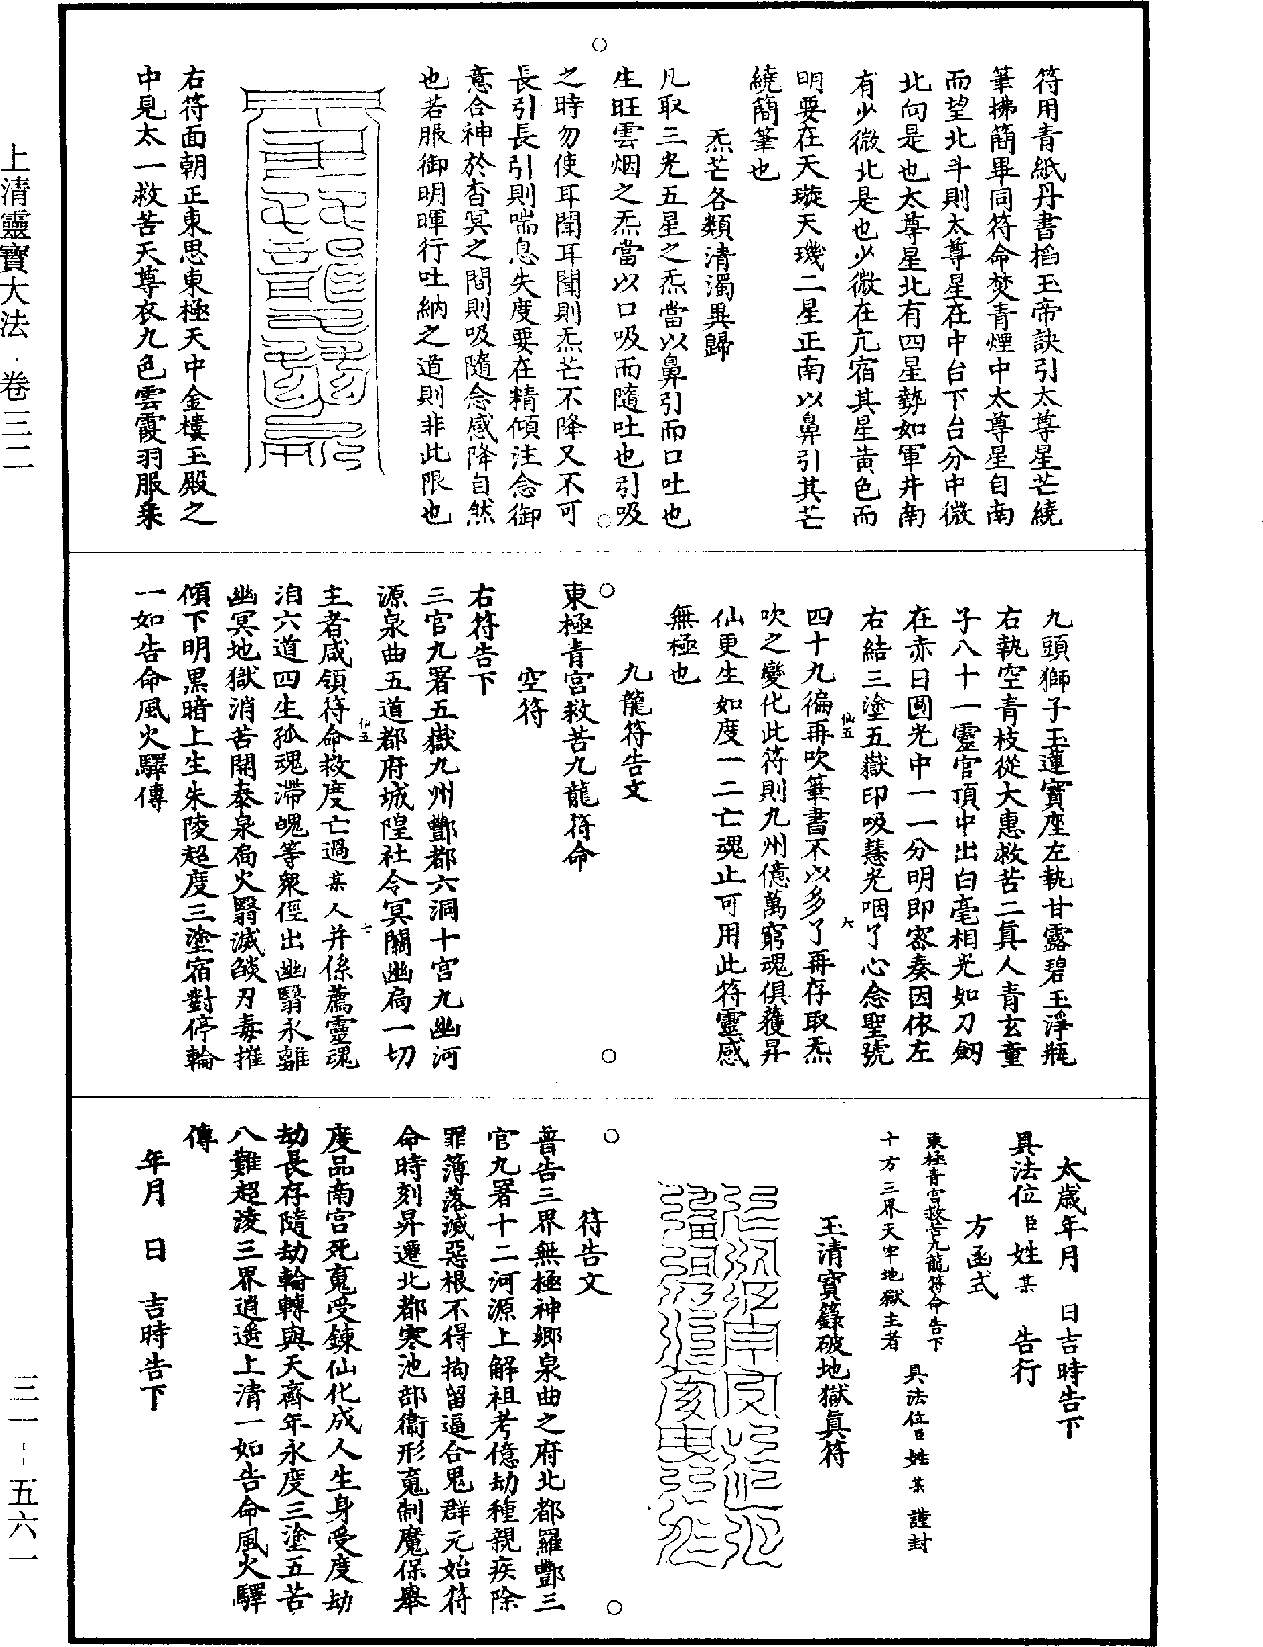 上清靈寶大法·卷三二
三一--五六一
符用青紙丹書掐玉帝訣引太尊星芒繞
筆拂簡畢同符命焚青煙中太尊星自南
而望北斗則太尊星在中台下台分中微
北向是也太尊星北有四星勢如軍井南
有少微北是也少微在亢宿其星黃色而
明要在天璇天璣二星正南以鼻引其芒
繞簡筆也
炁芒各類清濁異歸
凡取三光五星之炁當以鼻引而口吐也
生旺雲烟之炁當以口吸而隨吐也引吸
之時勿使耳聞耳聞則炁芒不降又不可
長引長引則喘息失度要在精傾注念御
意合神於杳冥之間則吸隨念感降自然
也若服御明暉行吐納之道則非此限也
右符面朝正東思東極天中金樓玉殿之
中見太一救苦天尊衣九色雲霞羽服乘
九頭獅子玉蓮寶座左執甘露碧玉淨瓶
右執空青枝從大惠救苦二真人青玄童
子八十一靈官頂中出白毫相光如刀劒
在赤日圓光中一一分明即密奏因依左
右結三塗五獄印吸慧光咽了心念聖號
四十九徧再吹筆書不以多了再存取炁
吹之變化此符則九州億萬窮魂俱獲昇
仙更生如度一二亡魂止可用此符靈感
無極也
九龍符告文
東極青宮救苦九龍符命
空符
右符告下
三官九署五嶽九州酆都六洞十宮九幽河
源泉曲五道都府城隍社令冥關幽扃一切
主者咸領符命救度亡過某人并係薦靈魂
洎六道四生孤魂滯魄等衆徑出幽翳永離
幽冥地獄消苦開泰泉扃火翳滅燄刃毒摧
傾下明黑暗上生朱陵超度三塗宿對停輪
一如告命風火驛傳
仙五 六
仙五 七
太歲年月 日吉時告下
具法位臣姓某 告行
方函式
東極青宮救苦九龍符命告下
十方三界天牢地獄主者
具法位臣姓某 謹封
玉清寶籙破地獄真符
符告文
普告三界無極神鄉泉曲之府北都羅酆三
官九署十二河源上解祖考億劫種親疾除
罪簿落滅惡根不得拘留逼合鬼群元始符
命時刻昇遷北都寒池部衞形魂制魔保舉
度品南宮死魂受鍊仙化成人生身受度劫
劫長存隨劫輪轉與天齊年永度三塗五苦
八難超淩三界逍遙上清一如告命風火驛
傳
年月 日 吉時告下